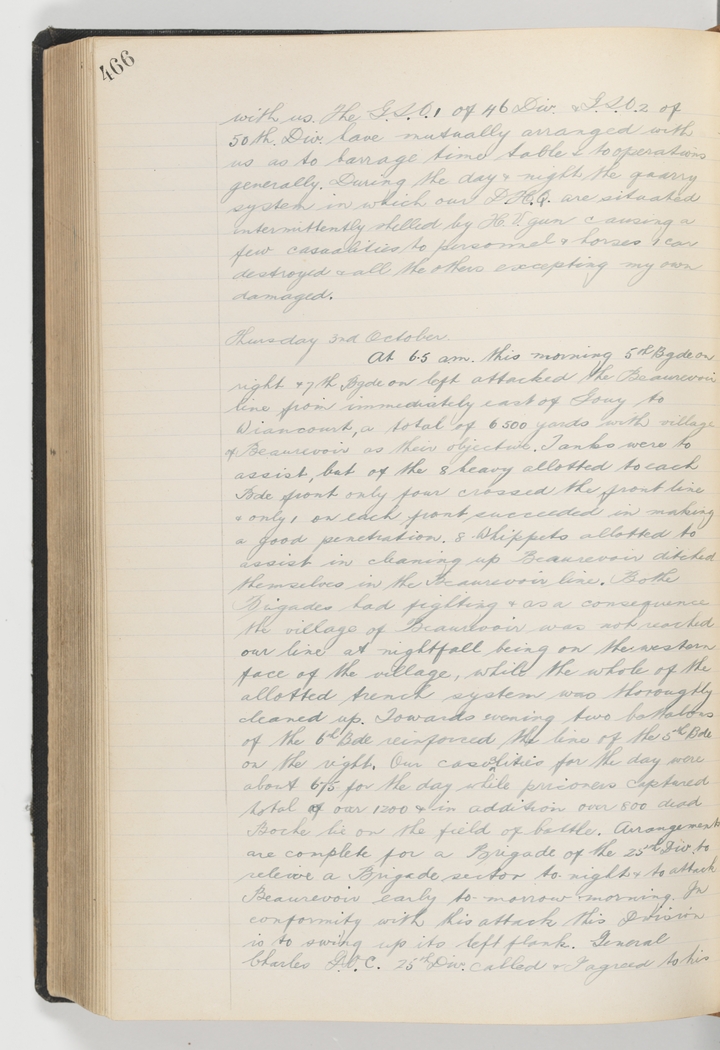 466
with us. The G.S.O.1 of 46 Div. & G.S.O.2 of
50th. Div. have mutually arranged with
us as to barrage time table & to operations
generally. During the day & night the quarry
system in which our D.H.Q. are situated
intermittently shelled by H.V. gun causing a
few casualities to personnel & horses 1 car
destroyed & all the others excepting my own
damaged.
Thursday 3rd October.
At 6.5 am. this morning 5th Bgde on
right & 7th Bgde on left attacked the Beaurevoir
line from immediately east of Jouy to
Wiancourt, a total of 6500 yards with village
of Beaurevoir as their objective. Tanks were to
assist, but of the 8 heavy allotted to each
Bde front only four crossed the front line
& only 1 on each front succeeded in making
a good penetration. 8 Whippets allotted to
assist in cleaning up Beaurevoir ditched
themselves in the Beaurevoir line. Both
Brigades had fighting & as a consequence
the village of Beaurevoir was not reached
our line at nightfall being on the western
face of the village, while the whole of the
allotted trench system was thoroughly
cleaned up. Towards evening two battalions
of the 6th Bde reinforced the line of the 5th Bde
on the right. Our casualities for the day were
about 675 for the day while prisoners captured
total of our 1200 & in addition over 800 dead
Boche lie on the field of battle. Arrangements
are complete for a Brigade of the 25th Div. to
releive a Brigade sector to-night & to attack
Beaurevoir early to-morrow morning. In
conformity with this attack this Division
is to swing up its left flank. General
Charles G.O.C. 25th Div. called & I agreed to his